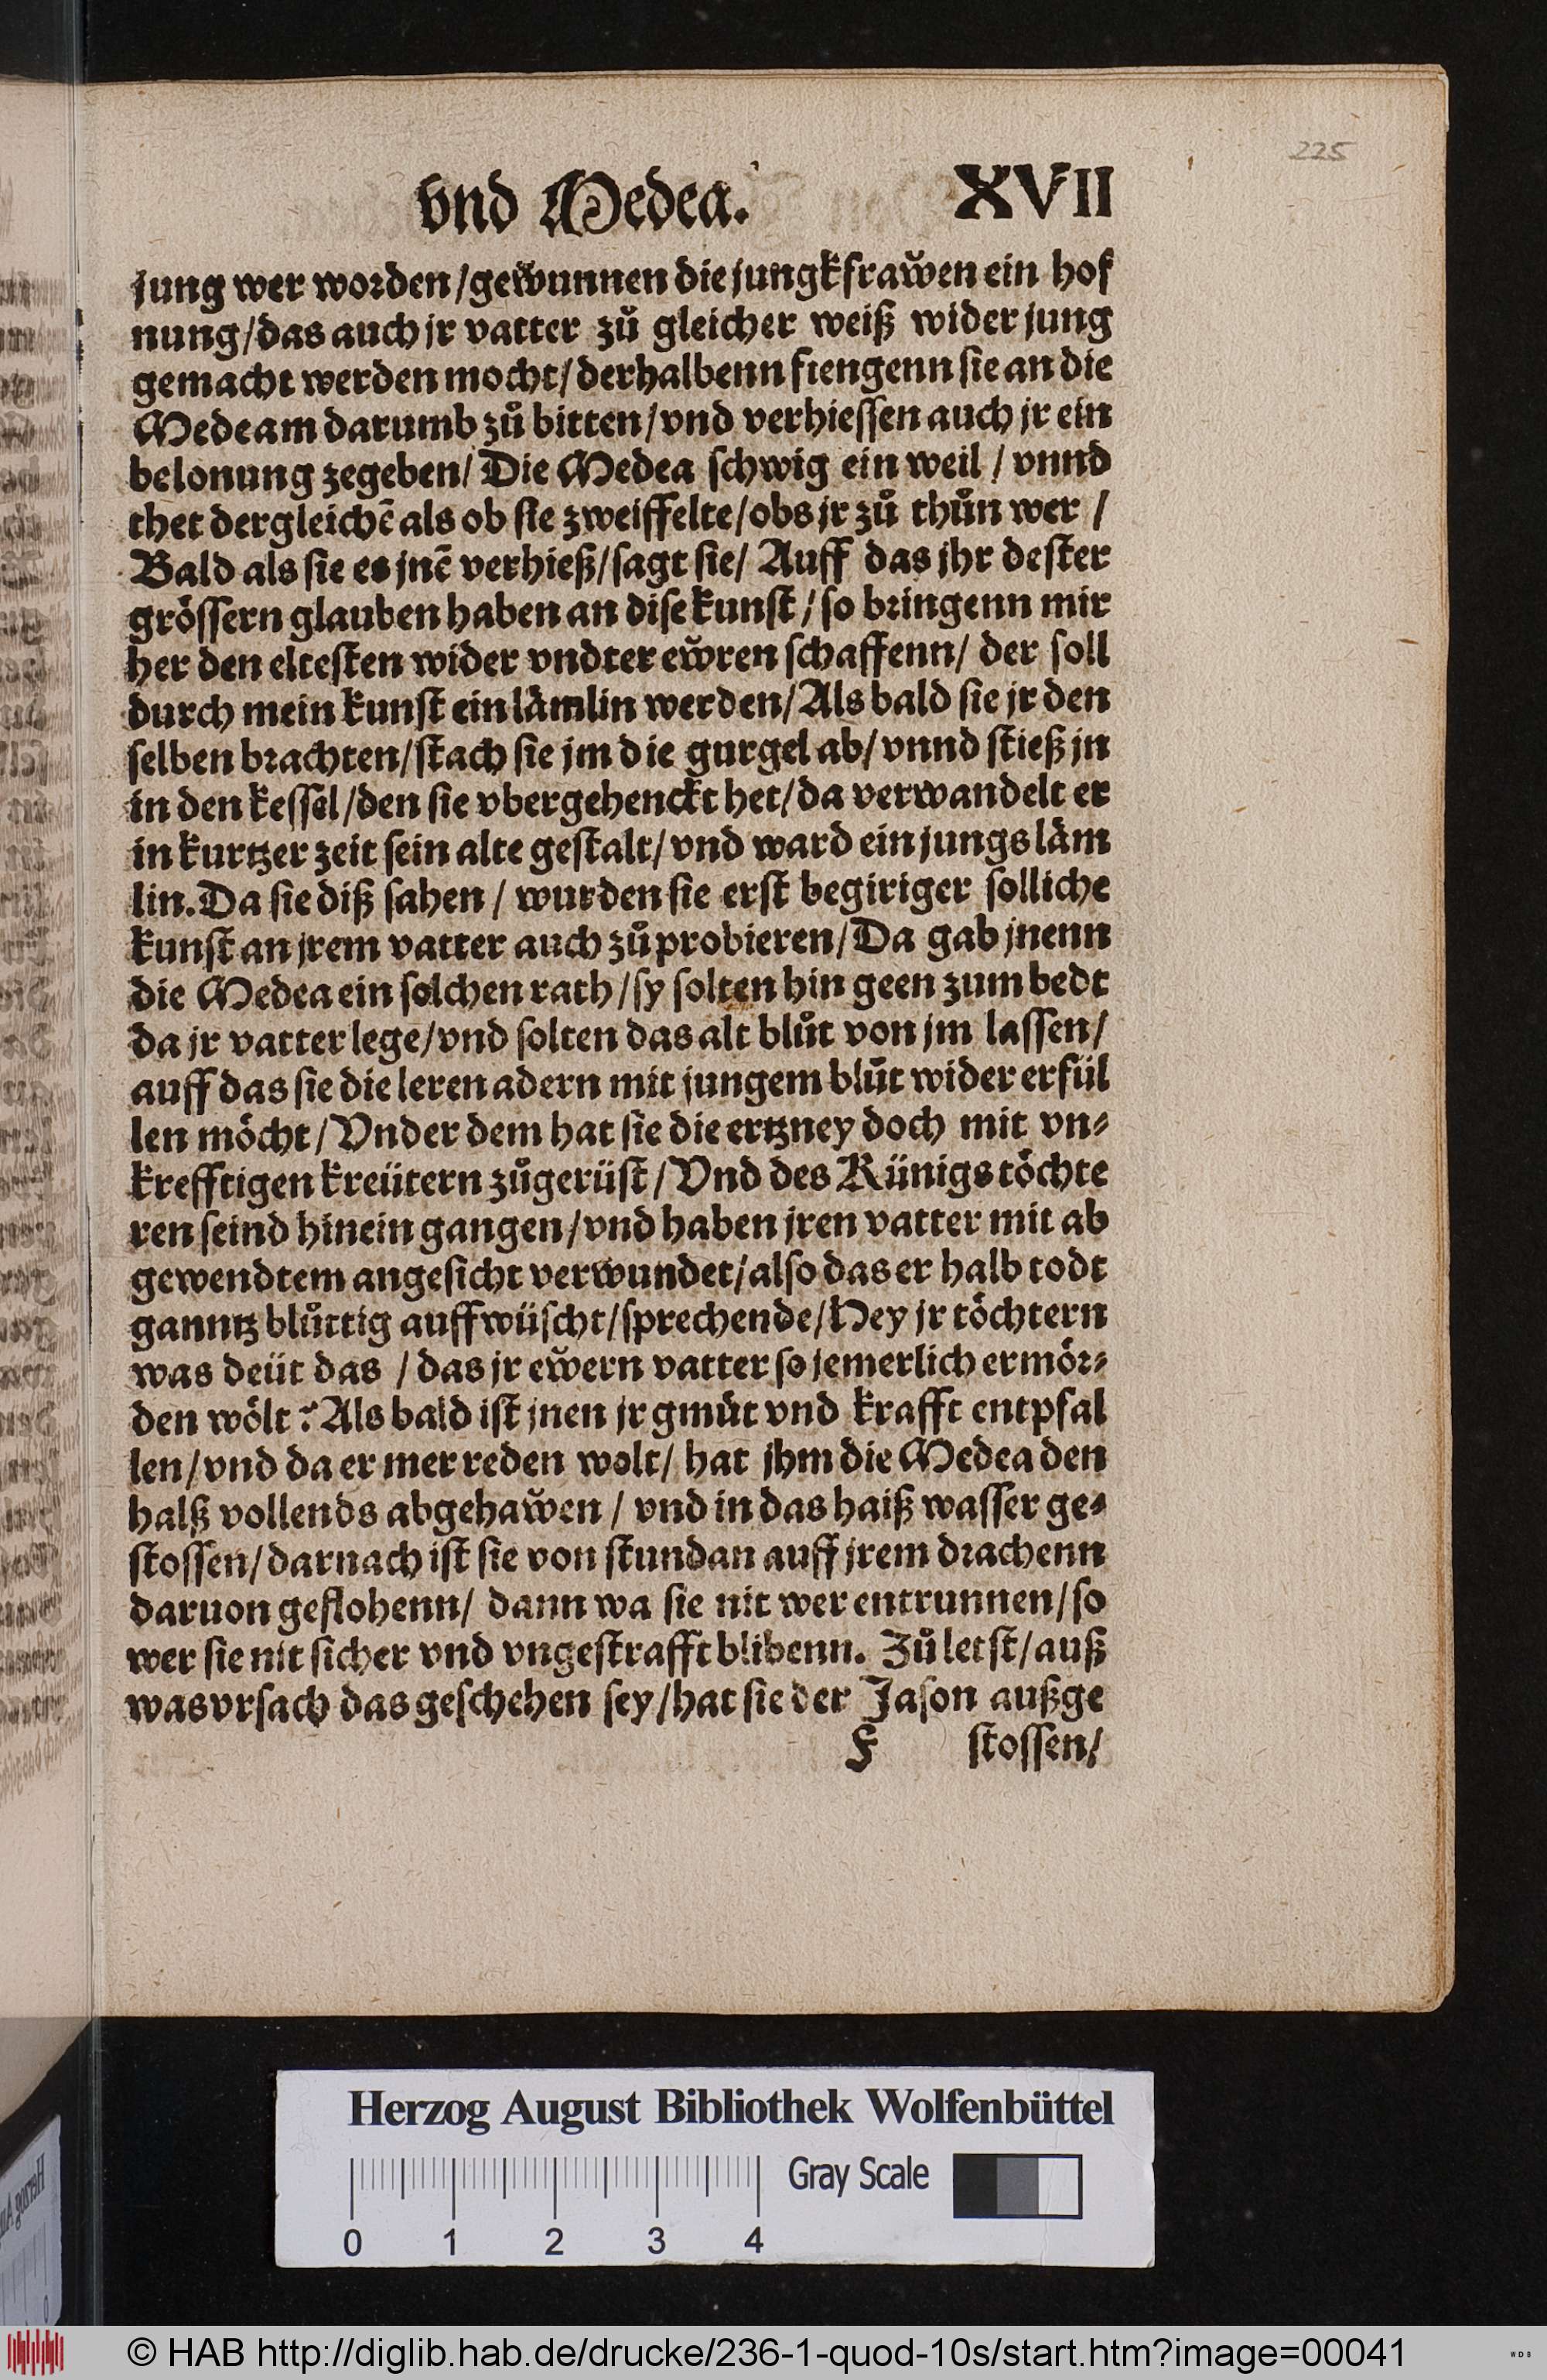 225
vnd Medea. XVII
jung wer worden/gew̆unnen die jungkfraw̆en ein hof
nung/das auch jr vatter zů gleicher weiß wider jung
gemacht werden mocht/derhalbenn fiengenn ſie an die
Medeam darumb zů bitten/vnd verhieſſen auch jr ein
belonung zegeben/Die Medea ſchwig ein weil/vnnd
thet dergleichē als ob ſie zweiffelte/obs jr zů thůn wer/
Bald als ſie es jnē verhieß/ſagt ſie/Auff das jhr deſter
gröſſern glauben haben an diſe kunſt/ſo bringenn mir
her den elteſten wider vndter ew̆ren ſchaffenn/der ſoll
durch mein kunſt ein lämlin werden/Als bald ſie jr den
ſelben brachten/ſtach ſie jm die gurgel ab/vnnd ſtieß jn
in den keſſel/den ſie vbergehenckt het/da verwandelt er
in kurtzer zeit ſein alte geſtalt/vnd ward ein jungs läm
lin. Da ſie diß ſahen/wurden ſie erſt begiriger ſolliche
kunſt an jrem vatter auch zů probieren/Da gab jnenn
die Medea ein ſolchen rath/ſy ſolten hin geen zum bedt
da jr vatter lege/vnd ſolten das alt blůt von jm laſſen/
auff das ſie die leren adern mit jungem blůt wider erfül
len möcht/Vnder dem hat ſie die ertzney doch mit vn⸗
krefftigen kreütern zůgerüſt/Vnd des Künigs töchte
ren ſeind hinein gangen/vnd haben jren vatter mit ab
gewendtem angeſicht verwundet/alſo das er halb todt
ganntz blůttig auffwüſcht/ſprechende/Hey jr töchtern
was deüt das/das jr ew̆ern vatter ſo jemerlich ermör⸗
den wölt? Als bald iſt jnen jr gmůt vnd krafft entpfal
len/vnd da er mer reden wolt/hat jhm die Medea den
halß vollends abgehaw̆en/vnd in das haiß waſſer ge⸗
ſtoſſen/darnach iſt ſie von ſtundan auff jrem drachenn
daruon geflohenn/dann wa ſie nit wer entrunnen/ſo
wer ſie nit ſicher vnd vngeſtrafft blibenn. Zů letſt/auß
was vrſach das geſchehen ſey/hat ſie der Jaſon außge
F ſtoſſen/
Herzog August Bibliothek Wolfenbüttel
Gray Scale
0 1 2 3 4
© HAB http://diglib.hab.de/drucke/236-1-quod-10s/start.htm?image=00041